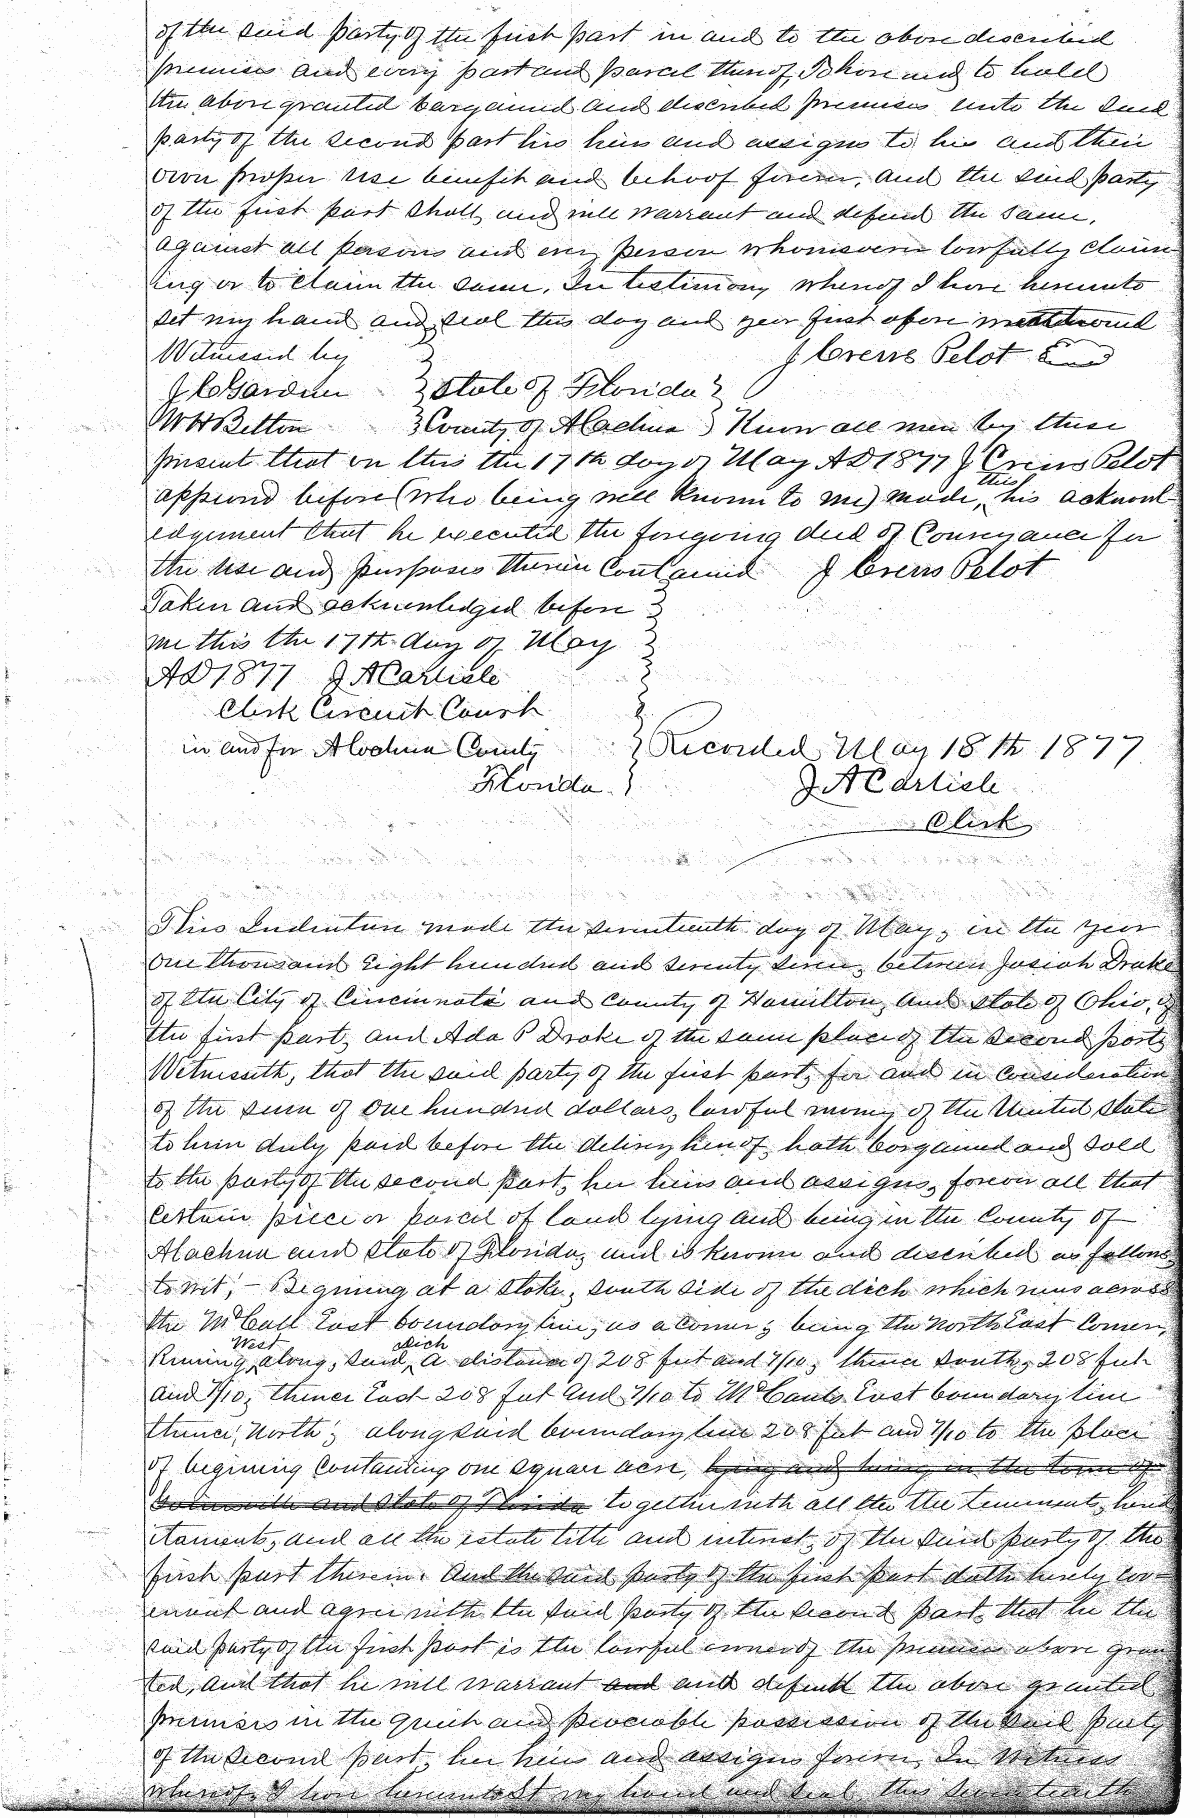 of the said party of the first part in and to the above described
premises and every part and parcel thereof, To have and to hold
the above granted bargained and described premises unto the said
party of the second part his heirs and assigns to his and their
own proper use benefit and behoof forever, and the said party
of the first part shall and will warrant and defend the same,
against all persons and every person whomsoever lawfully claim
ing or to claim the same. In testimony whereof I have hereunto
set my hand and seal this day and year first afore mentioned
Witnessed by J Crews Pelot
J C Gardner State of Florida
W H Belton County of Alachua Know all men by these
present that on this the 17th day of May AD 1877 J Crews Pelot
appeared before (who being well known to me) made, this his acknowl
edgement that he executed the foregoing deed of Conveyance for
the use and purposes therein contained J Crews Pelot
Taken and acknowledged before
me this the 17th day of May
AD 1877 J A Carlisle
Clerk Circuit Court
in and for Alachua County Recorded May 18th 1877
Florida J A Carlisle
Clerk
This Indenture made the seventeenth day of May, in the year
one thousand Eight hundred and seventy seven, between Josiah Drake
of the City of Cincinnati and county of Hamilton, and state of Ohio, of
the first part, and Ada P Drake of the same place of the second part,
Witnesseth, that the said party of the first part, for and in consideration
of the sum of one hundred dollars, lawful money of the United State
to him duly paid before the delivery hereof, hath bargained and sold
to the party of the second part, her heirs and assigns, forever all that
certain piece or parcel of land lying and being in the County of
Alachua and State of Florida, and is known and described as follows
to wit; - Begining at a stake, south side of the dich which runs across
the McCall East boundary line, as a corner; being the North East Corner,
Runing West along, said dich a distance of 208 feet and 7/10, thence south, 208 feet
and 7/10, thence East 208 feet and 7/10 to McCauls East boundary line
thence, North, along said boundary line 208 feet and 7/10 to the place
of begining containing one square acre, lying and being in the town of
Gainesville and State of Florida together with all the the tenements, hered
itaments, and all the estate title and interest, of the said party of the
first part therein. And the said party of the first part doth hereby cov-
enant and agree with the said party of the second part, that he the
said party of the first part is the lawful owner of the premises above gran
ted, and that he will warrant and and defend the above granted
premises in the quiet and peaceable possession of the said party
of the second part, her heirs and assigns forever, In Witness
whereof, I have hereunto set my hand and seal this seventeenth